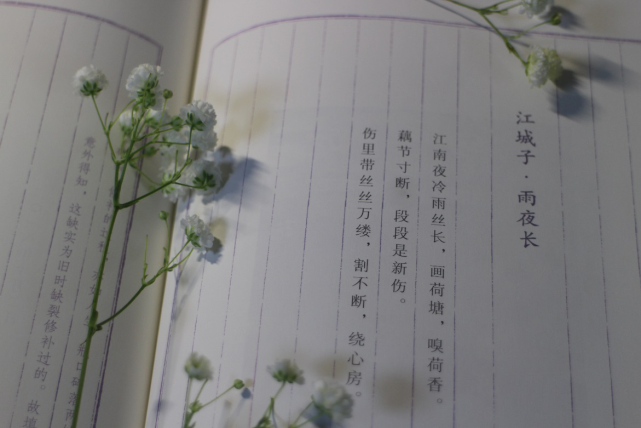 江城子·雨夜长
江南夜冷雨丝长，画荷塘，嗅荷香。
藕节寸断，段段是新伤。
伤里带丝丝万缕，割不断，绕心房。
意外得知，这缺实为旧时缺裂修补过的。故填